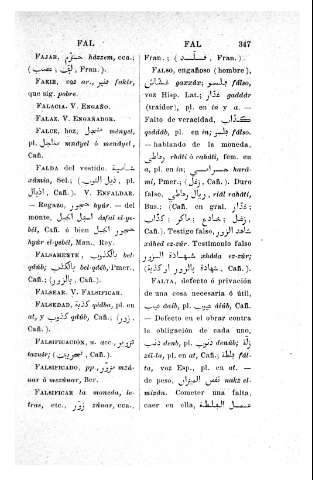 FAL
FAL
347
FAJAR, حتزم házzem, cca.;
( لتى ; عصب , Fran.).
FAKIR, voz ar., فقير fakír,
que sig. pobre.
FALACIA. V. ENGAÑO.
FALAZ. V. ENGAÑADOR.
FALCE, hoz, منجل ményel,
pl. مناجل menáyel ó menéyel,
Cañ.
FALDA del vestido, شامية
xámia, Sel.; ( ذيل الثوب , pl.
اذيال , Cañ.). V. ENFALDAR.
— Regazo, حجور hyúr. — del
monte, اسفل الجبل ásfal el-ye-
bél, Cañ. ó bien حجور الجبل
hyúr el-yebél, Man., Rey.
FALSAMENTE, بالكذوب bel-
qdúb; بالكذب bel-qdéb, Pmer.,
Cañ.; ( بالزور , Cañ.).
FALSEAR. V. FALSIFICAR.
FALSEDAD, كذبة qídba, pl. en
at, y كذوب qdúb, Cañ.; ( زور ,
Cañ.).
FALSIFICACIÓN, n. acc., تزوير
tazuír; ( تحريف , Cañ.).
FALSIFICADO, pp., مزور mzá-
uar ó mezáuuar, Ber.
FALSIFICAR la moneda, le-
tras, etc., زور záuar, cca.,
Fran.; ( فسد , Fran.).
FALSO, engañoso (hombre),
غشاش gaxxáx; فلسو fálso,
voz Hisp. Lat.; غدار gaddár
(traidor), pl. en in y a. —
Falto de veracidad, كذاب
qaddáb, pl. en in; فلسو fálso.
— hablando de la moneda,
رحاطي rháti ó raháti, fém. en
a, pl. en in; حرامي harā-
mí, Pmer.; ( زغل , Cañ.). Duro
falso, ريال رحاطي riál raháti,
Bus.; (Cañ. en gral. غدار ;
كذاب ; ماكر ; خادع ; زغل ,
Cañ.). Testigo falso, شاهد الزور
xáhed ez-zúr. Testimonio falso
شهادة الزور xháda ez-zúr;
( شهادة بالزور او كذبة , Cañ.).
FALTA, defecto ó privación
de una cosa necesaria ó útil,
عيب áaib, pl. عيوب áiúb, Cañ.
— Defecto en el obrar contra
la obligación de cada uno,
ذنب denb, pl. ذنوب denúb; زلة
zél-la, pl. en at, Cañ.; فلطة fál-
ta, voz Esp., pl. en at. —
de peso, نقص الميزان nakz el-
mizán. Cometer una falta,
caer en ella, عمل الغلطة